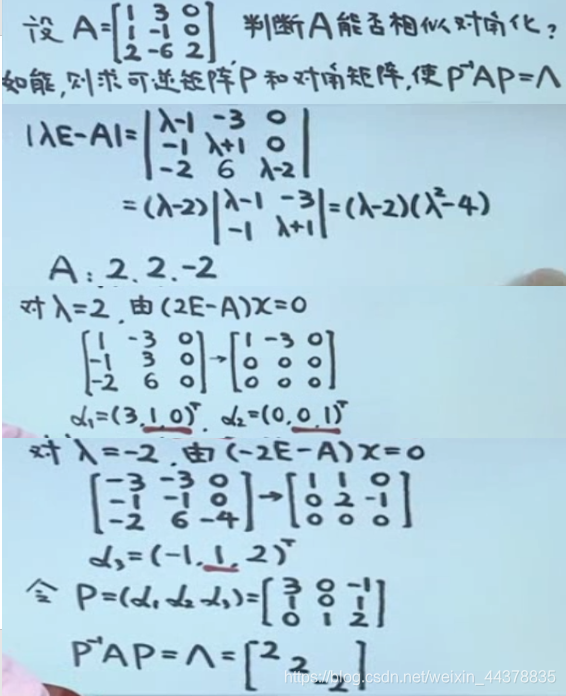 设 A=[1 3 0; 1 -1 0; 2 -6 2]. 判断A能否相似对角化?
如能,则求可逆矩阵P和对角矩阵,使P⁻¹AP=Λ
|λE-A|=|λ-1 -3 0; -1 λ+1 0; -2 6 λ-2|
=(λ-2)|λ-1 -3; -1 λ+1|=(λ-2)(λ²-4)
A: 2. 2. -2
对λ=2, 由(2E-A)x=0
[1 -3 0; -1 3 0; -2 6 0]→[1 -3 0; 0 0 0; 0 0 0]
α₁=(3,1,0)ᵀ, α₂=(0,0,1)ᵀ
对λ=-2, 由(-2E-A)x=0
[-3 -3 0; -1 -1 0; -2 6 -4]→[1 1 0; 0 2 -1; 0 0 0]
α₃=(-1,1,2)ᵀ
令 P=(α₁ α₂ α₃)=[3 0 -1; 1 0 1; 0 1 2]
P⁻¹AP=Λ=[2 2 -2]
https://blog.csdn.net/weixin_44378835